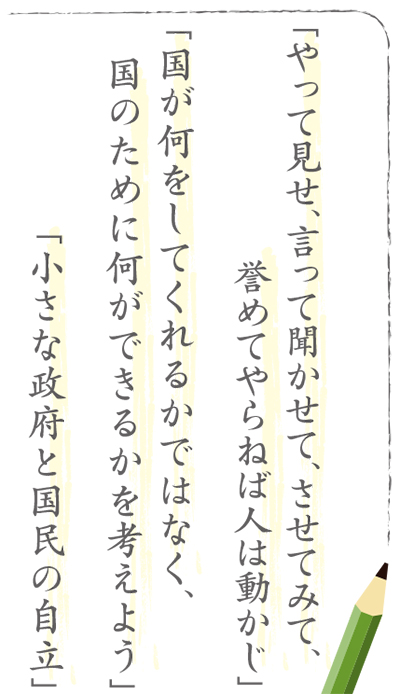 「やって見せ、言って聞かせて、させてみて、
誉めてやらねば人は動かじ」
「国が何をしてくれるかではなく、
国のために何ができるかを考えよう」
「小さな政府と国民の自立」